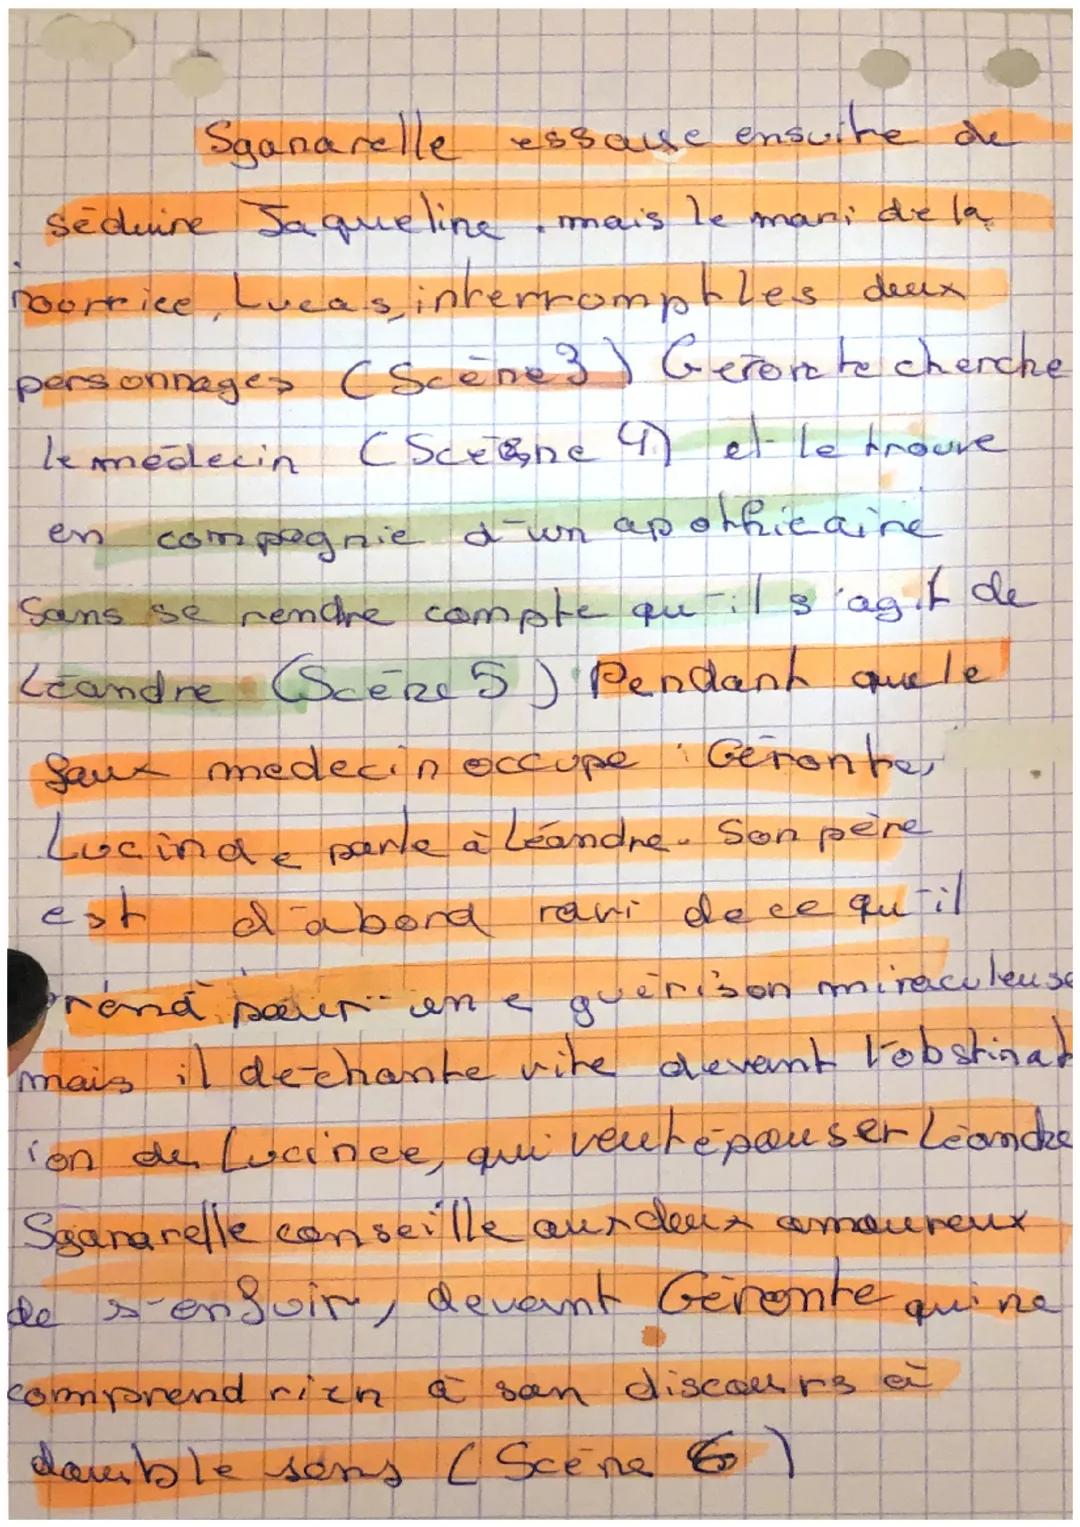 Sganarelle essaye ensuite de
séduire Jaqueline. mais le mari de la
nourrice, Lucas, interrompt les deux
personnages (Scène 3) Géronte cherche
le médecin (Scène 4) et le trouve
en compagnie d'un apothicaire
Sans se rendre compte qu'il s'agit de
Léandre (Scène 5) Pendant que le
faux medecin occupe Géronte,
Lucinde parle à Léandre. Son père
est d'abord ravi de ce qu'il
prend pour une guérison miraculeuse
mais il dechante vite devant l'obstinat
ion de Lucinee, qui veut épouser Léandre
Sganarelle conseille aux deux amoureux
de s'enfuir, devant Géronte qui ne
comprend rien à son discours à
double sens (Scène 6)